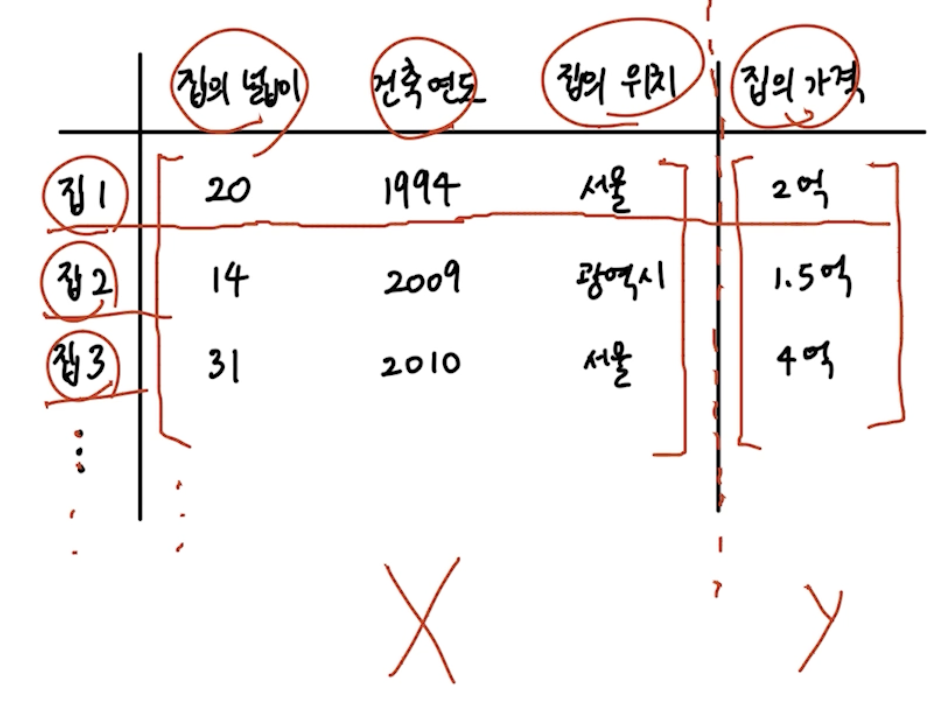 집의 넓이 건축연도 집의 위치 집의 가격
집1 20 1994 서울 2억
집2 14 2009 광역시 1.5억
집3 31 2010 서울 4억
X y